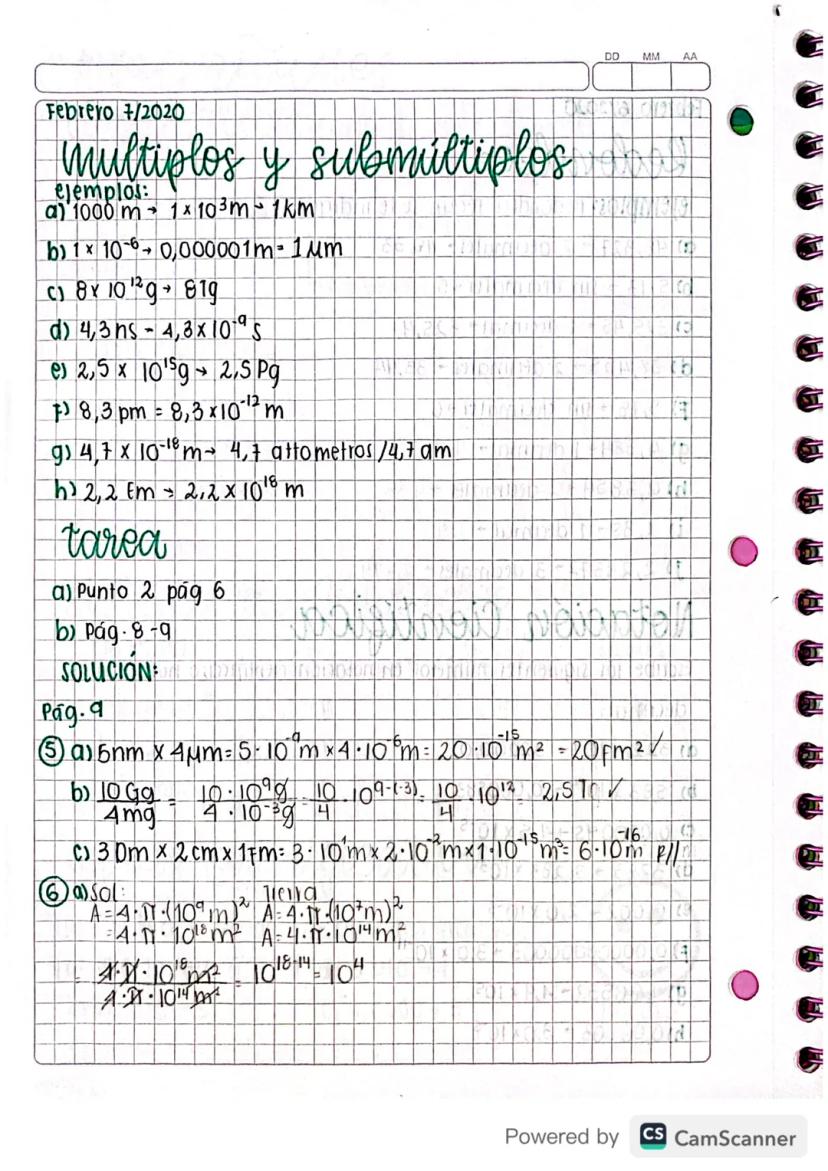 DD MM AA
Febrero 7/2020
Multiplos y submúltiplos
ejemplos:
a) 1000 m → 1 × 10³m → 1km
b) 1 × 10⁻⁶ → 0,000001m = 1 µm
c) 8 × 10¹²g → 8Tg
d) 4,3 ns - 4,3 × 10⁻⁹ s
e) 2,5 × 10¹⁵g → 2,5 Pg
f) 8,3 pm = 8,3 × 10⁻¹² m
g) 4,7 × 10⁻¹⁸ m → 4,7 attometros / 4,7 am
h) 2,2 Em → 2,2 × 10¹⁸ m
tarea
a) Punto 2 pág 6
b) Pág. 8-9
SOLUCIÓN:
Pág. 9
⑤ a) 5nm × 4µm = 5 · 10⁻⁹m × 4 · 10⁻⁶m = 20 · 10⁻¹⁵ m² = 20 fm² ✓
b) 10 Gg / 4mg = 10 · 10⁹g / 4 · 10⁻³g = 10/4 · 10⁹⁻⁽⁻³⁾ = 10/4 · 10¹² = 2,5 T ✓
c) 3 Dm × 2 cm × 1fm = 3 · 10¹m × 2 · 10⁻²m × 1 · 10⁻¹⁵ m³ = 6 · 10⁻¹⁶ m R//
⑥ a) Sol: Tierra
A = 4 · π · (10⁹ m)² A = 4 · π · (10⁷m)²
= 4 · π · 10¹⁸ m² A = 4 · π · 10¹⁴ m²
= 4 · π · 10¹⁸ m² / 4 · π · 10¹⁴ m² = 10¹⁸⁻¹⁴ = 10⁴
Powered by CS CamScanner